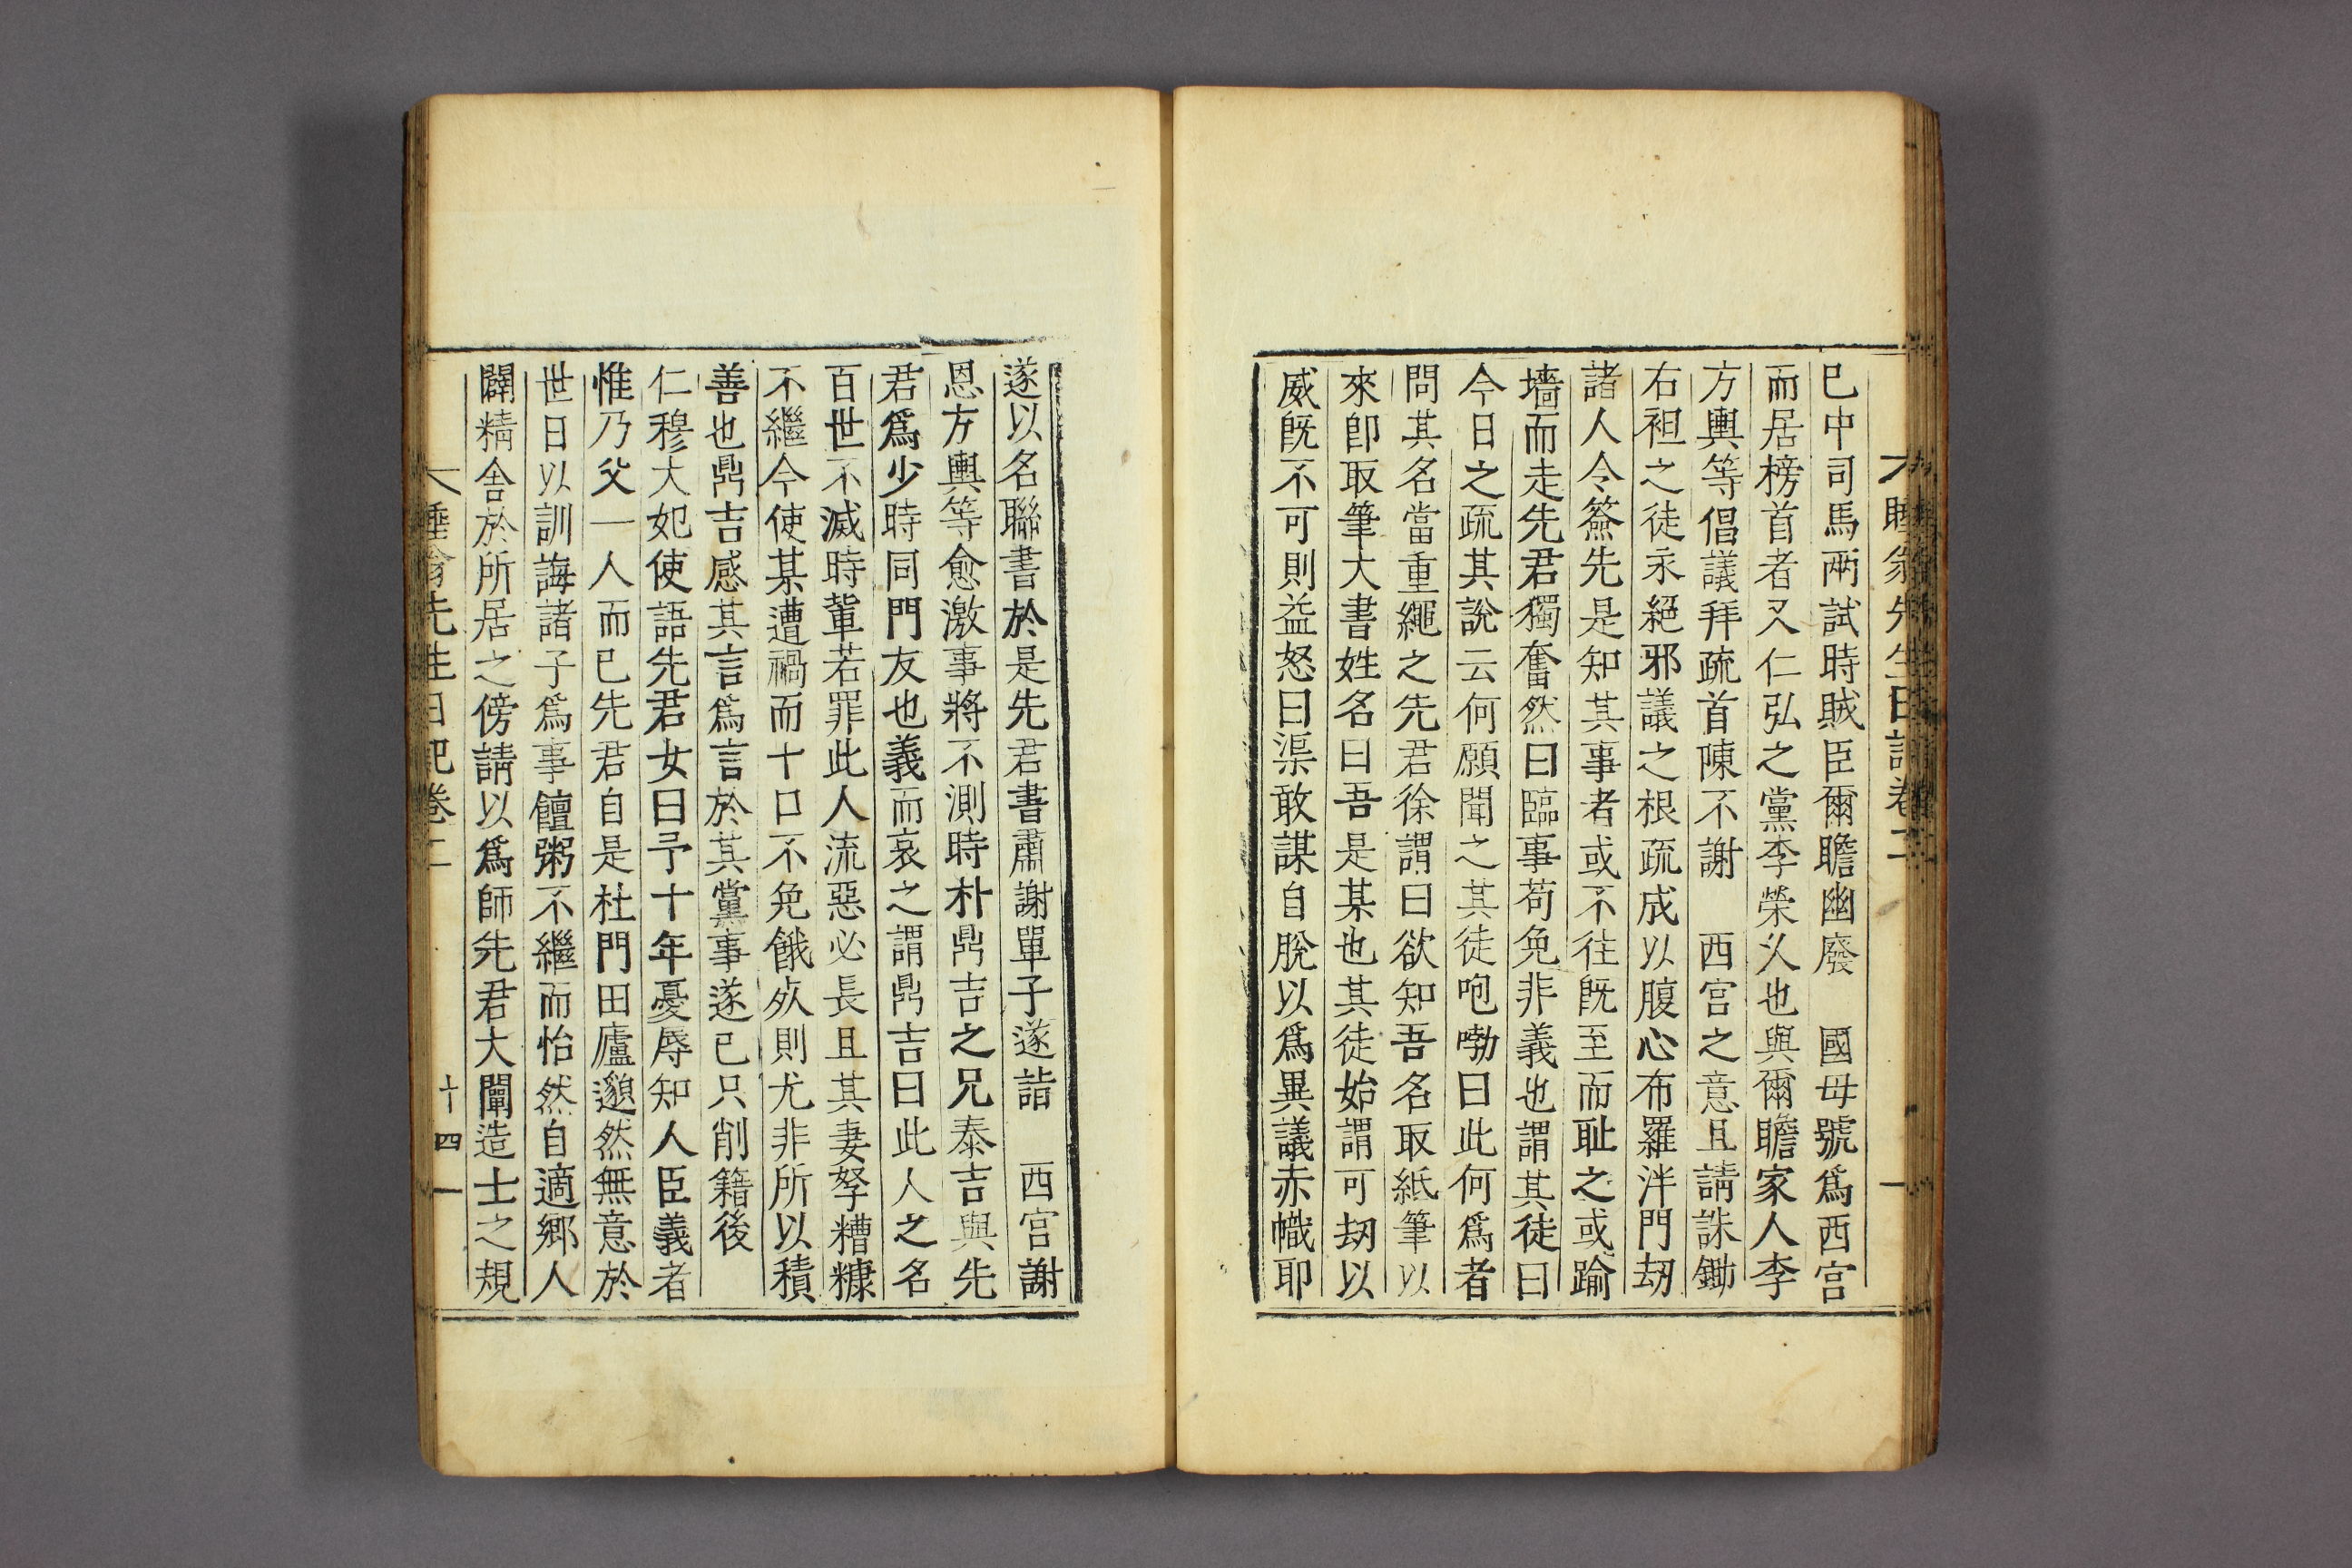 睡翁先生日記卷二
已中司馬兩試時賊臣爾瞻幽廢　國母號爲西宮
而居榜首者又仁弘之黨李榮㳄也與爾瞻家人李
方輿等倡議拜疏首陳不謝　西宮之意且請誅鋤
右袒之徒永絕邪議之根疏成以腹心布羅泮門刼
諸人令簽先是知其事者或不往旣至而耻之或踰
墻而走先君獨奮然曰臨事苟免非義也謂其徒曰
今日之疏其說云何願聞之其徒咆嘞曰此何爲者
問其名當重繩之先君徐謂曰欲知吾名取紙筆以
來卽取筆大書姓名曰吾是某也其徒始謂可刼以
威旣不可則益怒曰渠敢謀自脫以爲異議赤幟耶
遂以名聯書於是先君書肅謝單子遂詣　西宮謝
恩方輿等愈激事將不測時朴鼎吉之兄泰吉與先
君爲少時同門友也義而哀之謂鼎吉曰此人之名
百世不滅時軰若罪此人流惡必長且其妻孥糟糠
不繼今使某遭禍而十口不免餓死則尤非所以積
善也鼎吉感其言爲言於其黨事遂已只削籍後
仁穆大妃使語先君女曰予十年憂辱知人臣義者
惟乃父一人而已先君自是杜門田廬邈然無意於
世日以訓誨諸子爲事饘粥不繼而怡然自適鄉人
闢精舍於所居之傍請以爲師先君大闡造士之規
睡翁先生日記卷二　十四